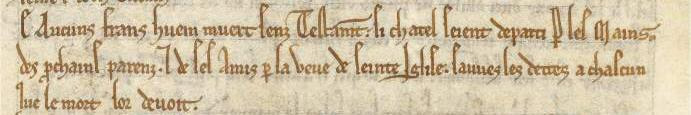 S Aucuns frans huem muert senz Testamt: li chatel seient departi p les Mains
des pchains parenz. ⁊ de ses Amis p la veue de seinte Iglise: sauves les dettes a chascun
que le mort lor devoit.